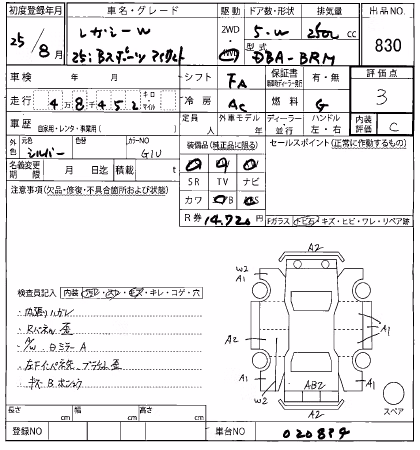 初度登録年月 車名・グレード 駆動 ドア数・形状 排気量 出品NO.
25/8月 レガシーW 2WD 5.W 2500 cc 830
25iBスポーツ アイサイト 型式 DBA-BRM
車検 年 月 シフト FA 保証書 有・無 評価点
走行 48452 キロ マイル 冷房 AC 燃料 G 3
車歴 自家用・レンタ・事業用( ) 定員 人 外車モデル 年 ディーラー 並行 ハンドル 左・右 内装評価 C
外色 元色 シルバー 色替 カラーNO G1U 装備品(純正品に限る) セールスポイント(正常に作動するもの)
名義変更期限 月 日迄 積載 t SR TV ナビ
注意事項(欠品・修復・不具合箇所および状態) カワ
R券 14,720 Fガラス・トビ石・キズ・ヒビ・ワレ・リペア跡
A2
W2 A1 A1
検査員記入 内装 ・キレ・コゲ・穴
・内張りハガレ
・Rパネル歪 A2 A1
・A/W、ミラーA
・左下 歪 A1 AB2 A1
・キズB W2
A2 スペア
長さ cm 幅 cm 高さ cm
登録NO 車台NO 020894